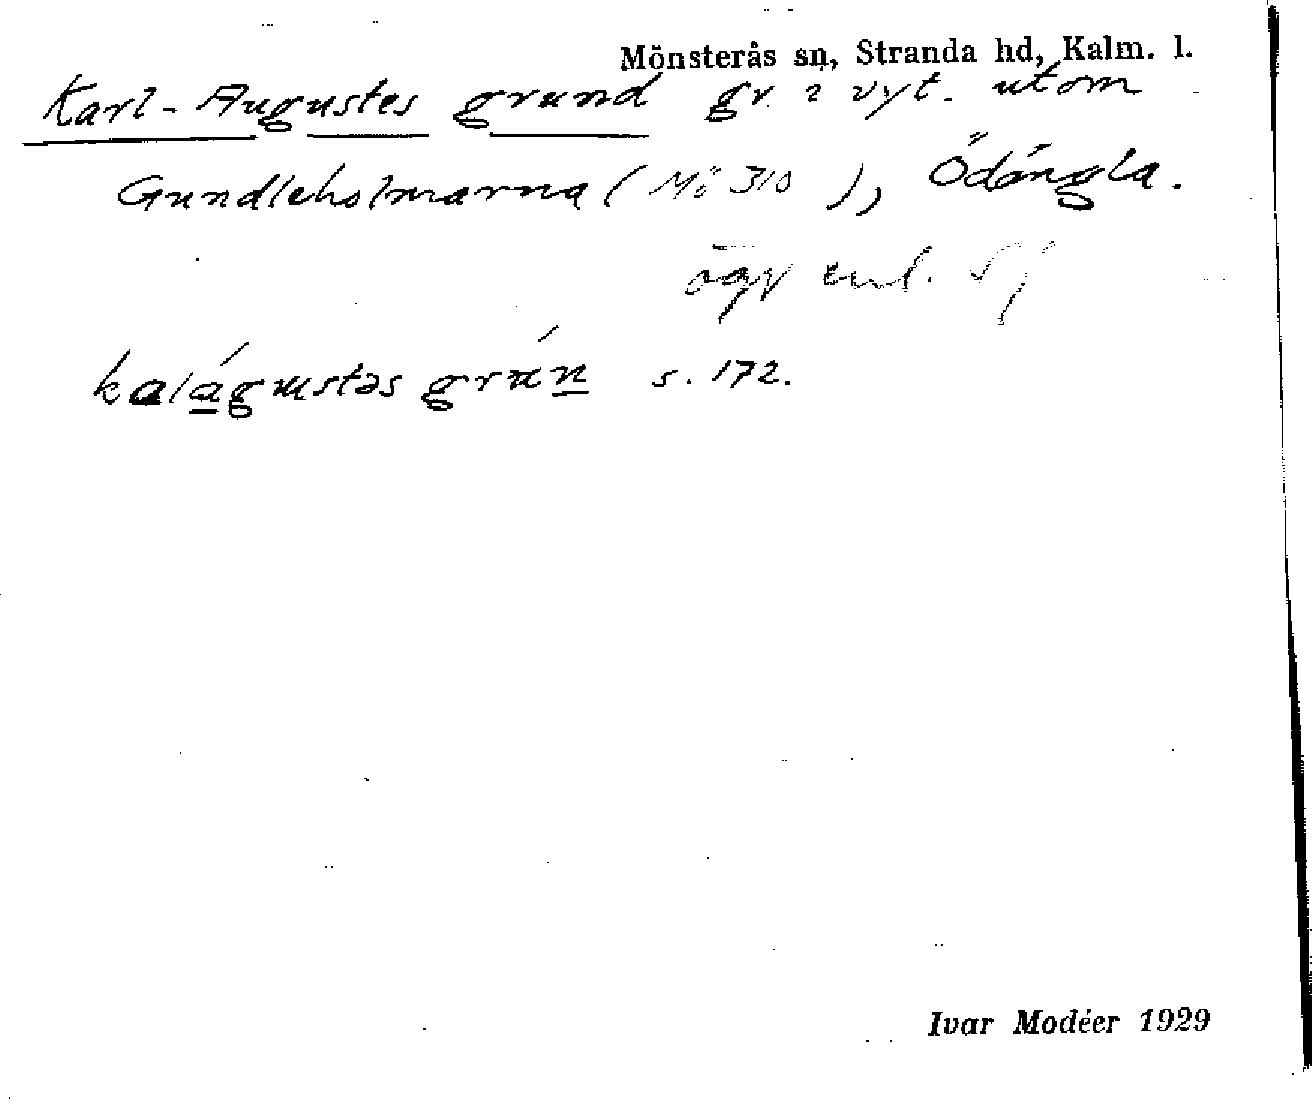 Mönsterås sn, Stranda hd, Kalm. l.
Karl-Augustes grund gr. i vyt. utom
Gundleholmarna (Mö 310 ), Ödängla.
enl.
kalágustəs grún s. 172.
Ivar Modéer 1929